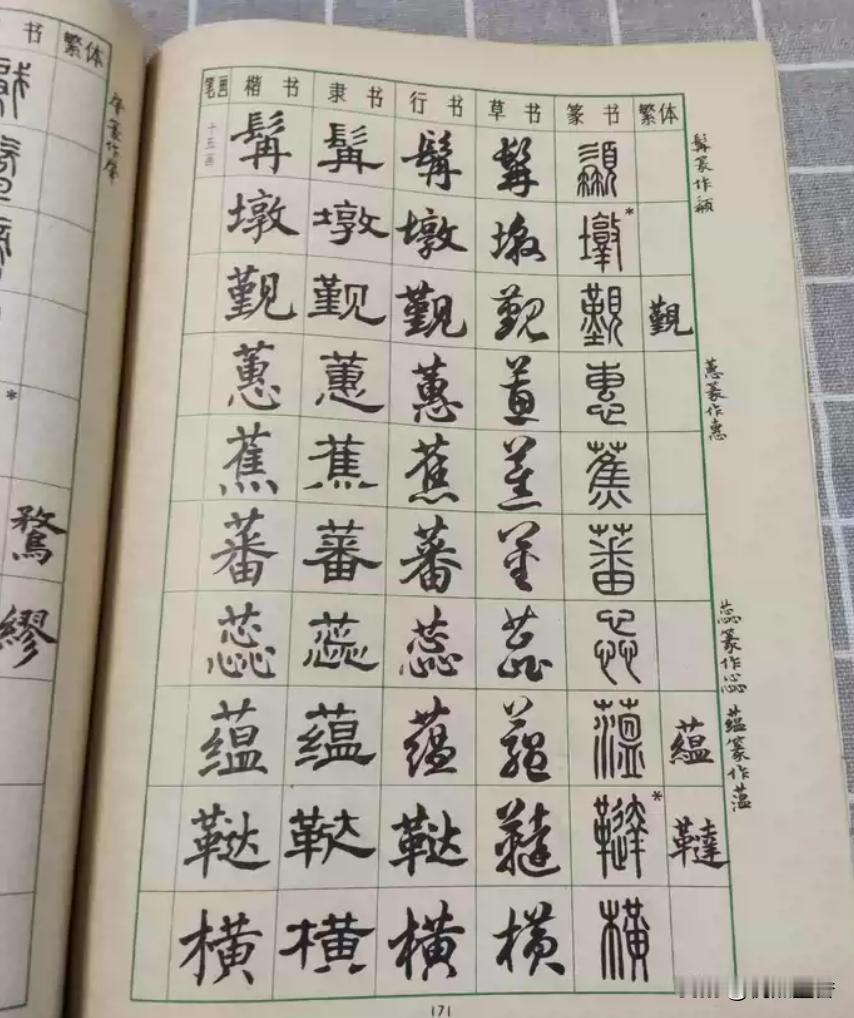 书 繁体
鹜
缪
笔画 楷书 隶书 行书 草书 篆书 繁体
十五画 髯 髯 髯 髯 髯
墩 墩 墩 墩 墩*
觐 觐 觐 觐 覲 覲
蕙 蕙 蕙 蕙 蕙
蕉 蕉 蕉 蕉 蕉
蕃 蕃 蕃 蕃 蕃
蕊 蕊 蕊 蕊 惢
蕴 蕴 蕴 蕴 薀 蘊
鞑 鞑 鞑 鞑 韃* 韃
横 横 横 横 横
蕙篆作惠
蕊篆作惢
蕴篆作薀
171